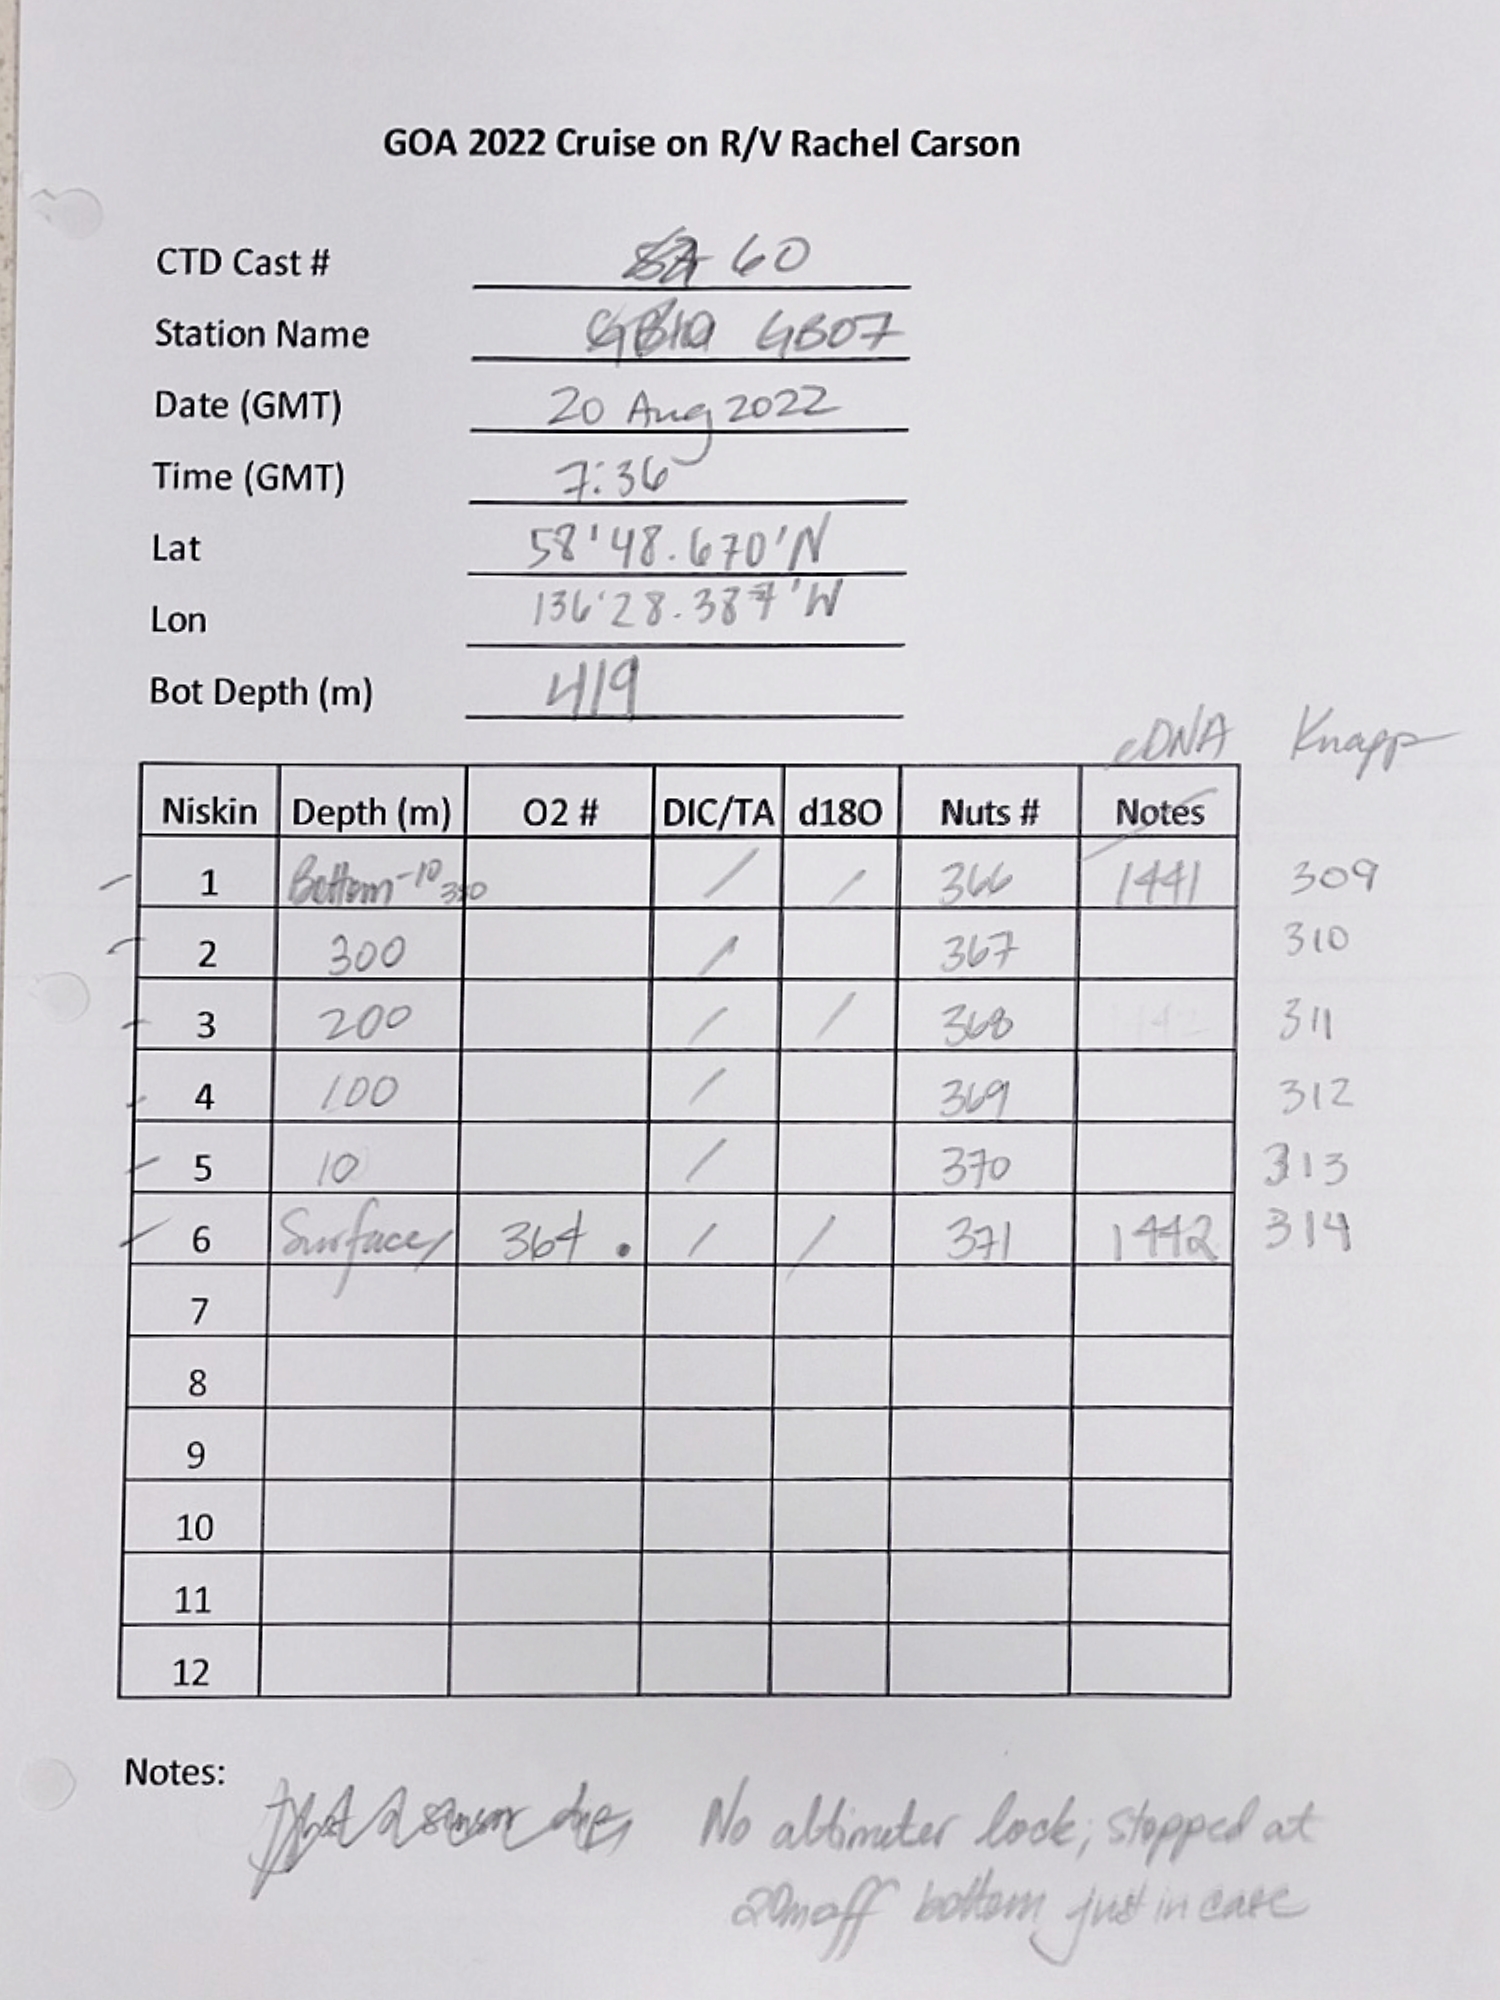 GOA 2022 Cruise on R/V Rachel Carson
CTD Cast # 60
Station Name GB07
Date (GMT) 20 Aug 2022
Time (GMT) 7:36
Lat 58'48.670'N
Lon 136'28.387'W
Bot Depth (m) 419
eDNA Knapp
Niskin Depth (m) O2 # DIC/TA d18O Nuts # Notes
1 Bottom-10 350 / / 366 1441 309
2 300 / 367 310
3 200 / / 368 311
4 100 / 369 312
5 10 / 370 313
6 Surface 364 . / / 371 1442 314
7
8
9
10
11
12
Notes: No altimeter lock; stopped at
20m off bottom just in case